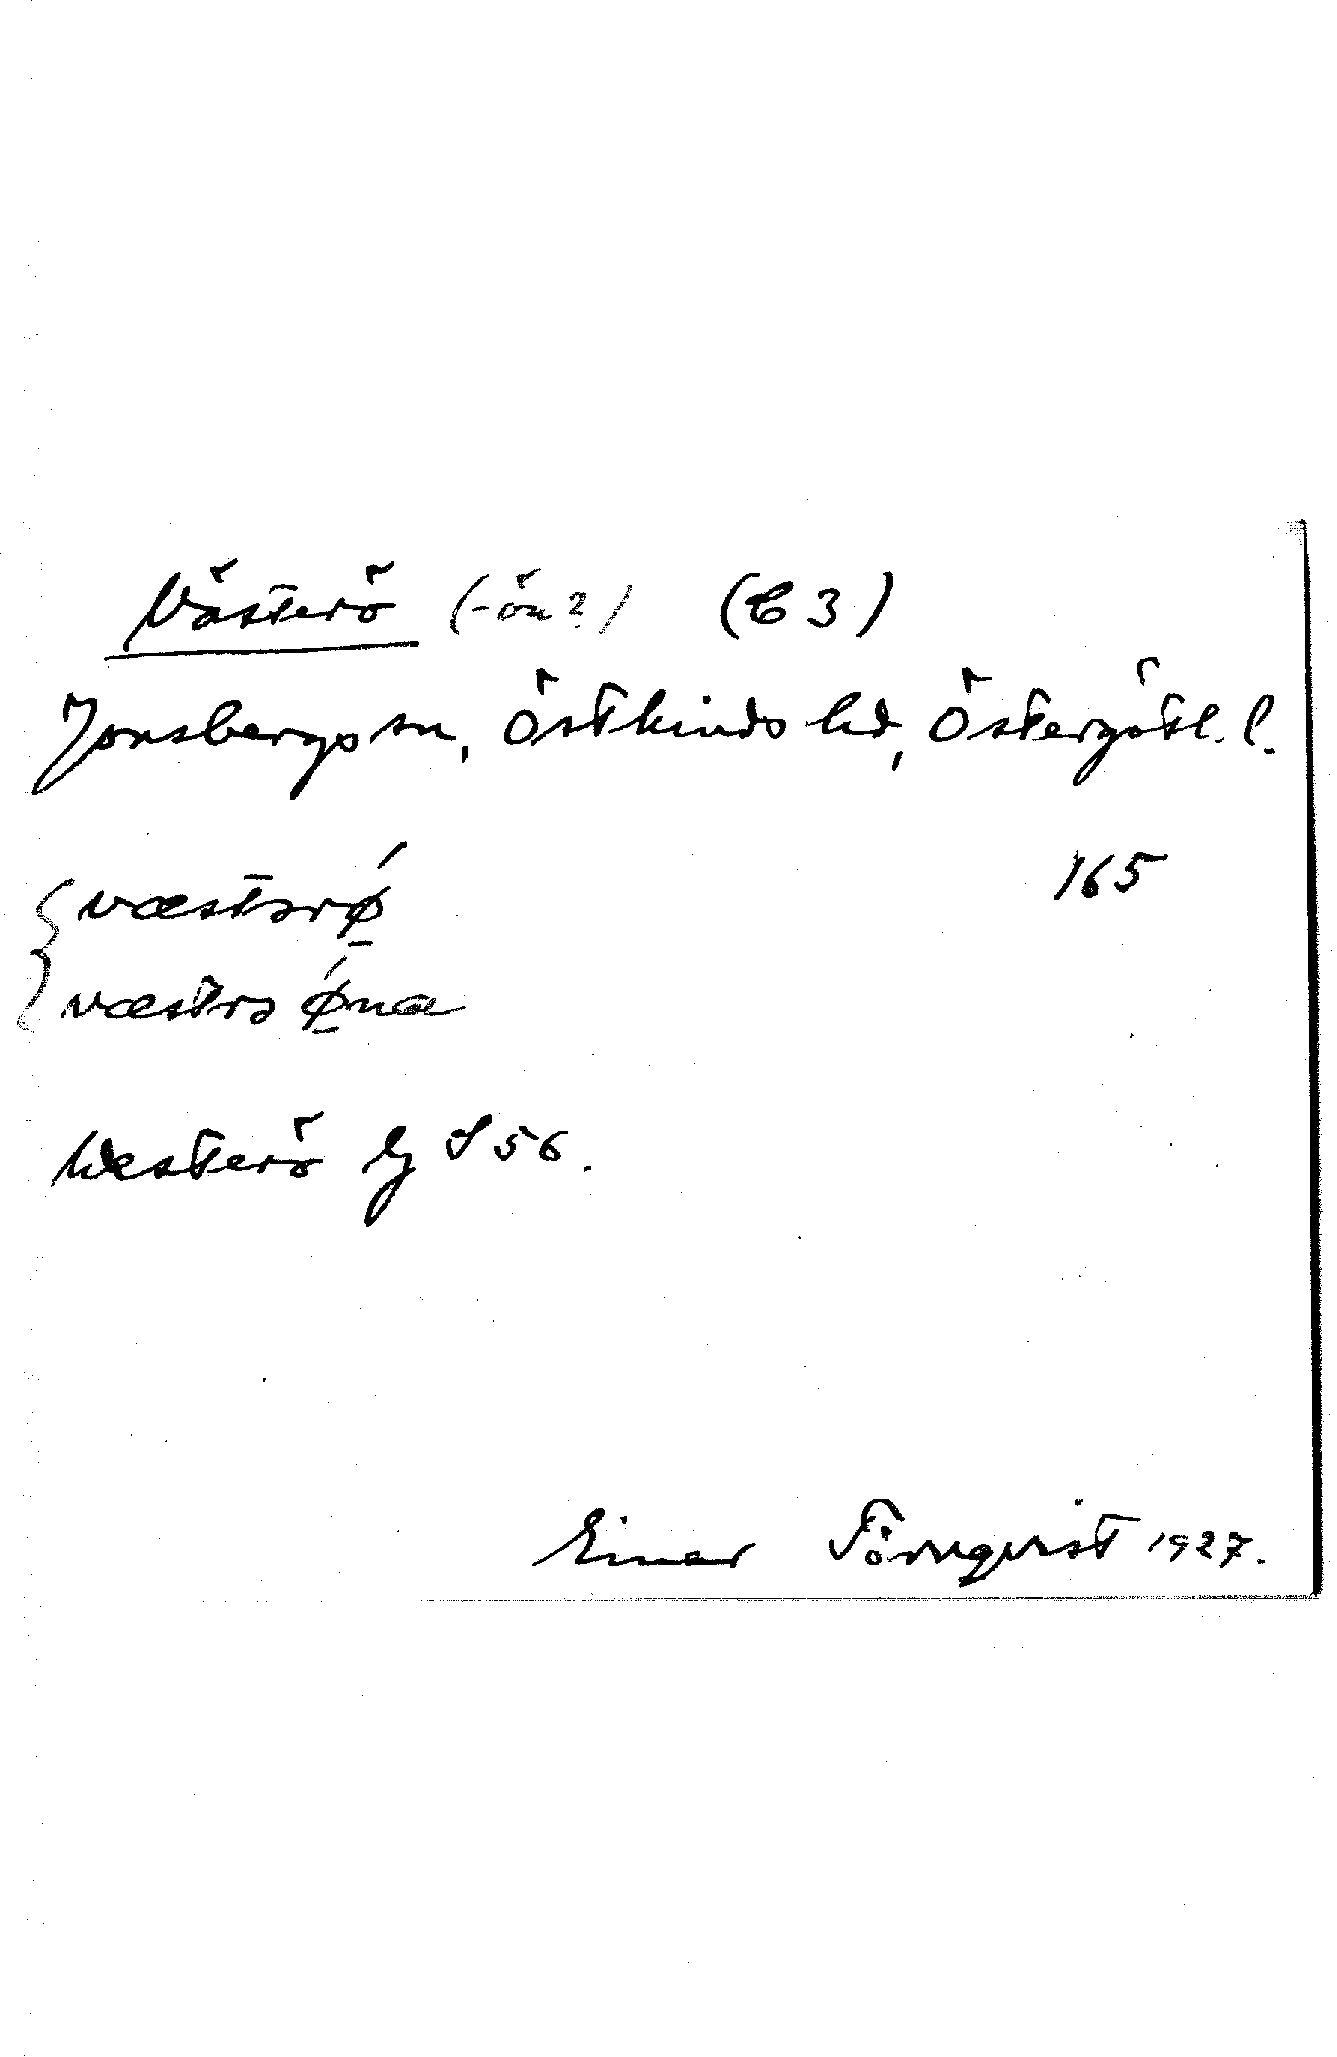 Västerö (-ön?) (C 3)
Jonsbergs sn, Östkinds hd, Östergötl. l.
165
væstərǿ
væstrə ǿna
Westerö Ej S 56.
Einar Törnqvist 1927.